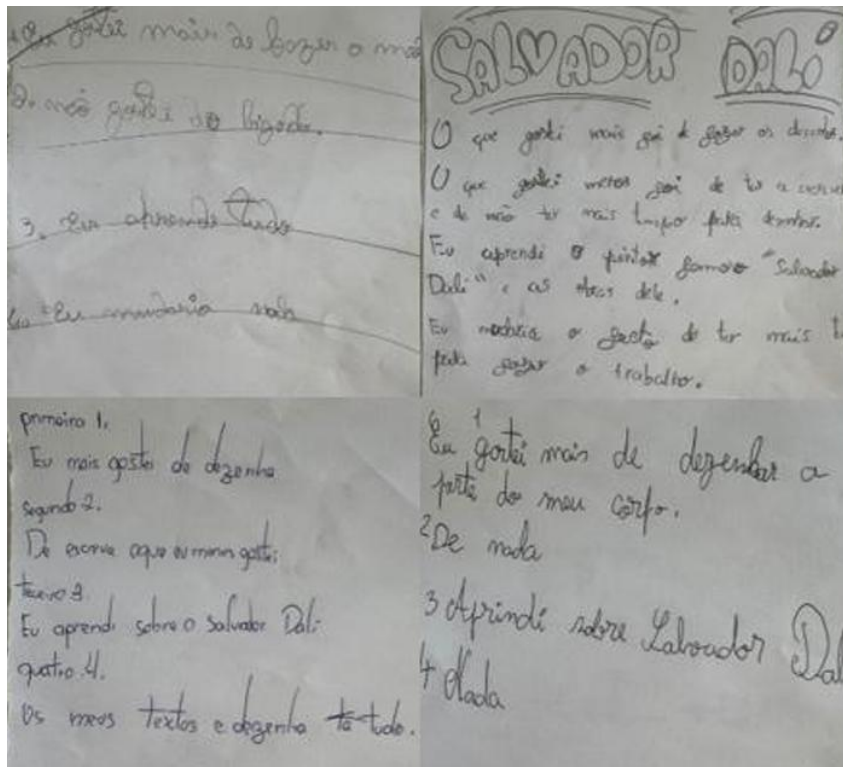 Eu gostei mais de fazer o
2. não gostei do bigode.
3. Eu aprende tudo
4. Eu mudaria nada
SALVADOR DALÍ
O que gostei mais foi de fazer os desenhos.
O que gostei menos foi de ter a
e de não ter mais tempo para
Eu aprendi o pintor famoso "Salvador
Dali" e as obras dele.
Eu mudaria o facto de ter mais
para fazer o trabalho.
primeiro 1.
Eu mais gostei de dezenha
segundo 2.
De escrever aque eu menin gostei
3
Eu aprendi sobre o Salvador Dali
quatro 4.
Os meus textos e dezenha ta tudo.
1
Eu gostei mais de dezenhar a
parte do meu corpo.
2 De nada
3 Aprindi sobre Salvador Dal
4 Nada